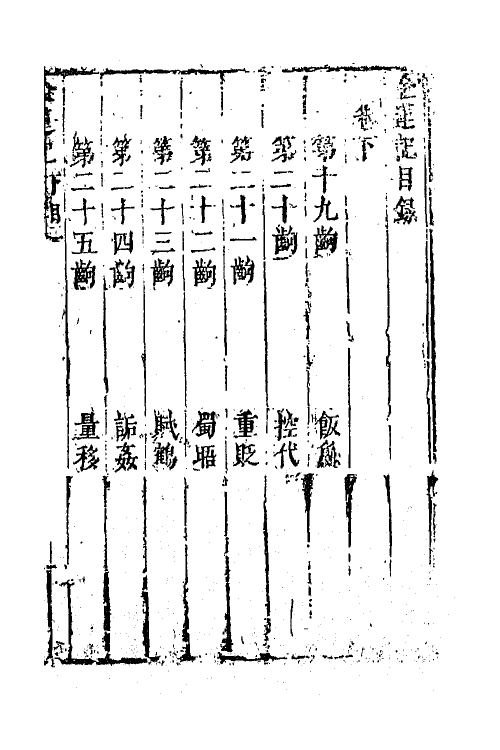 金蓮記目錄
卷下
第十九齣 飯魚
第二十齣 控代
第二十一齣 重貶
第二十二齣 蜀晤
第二十三齣 賦鶴
第二十四齣 詬姦
第二十五齣 量移
金蓮記 目錄